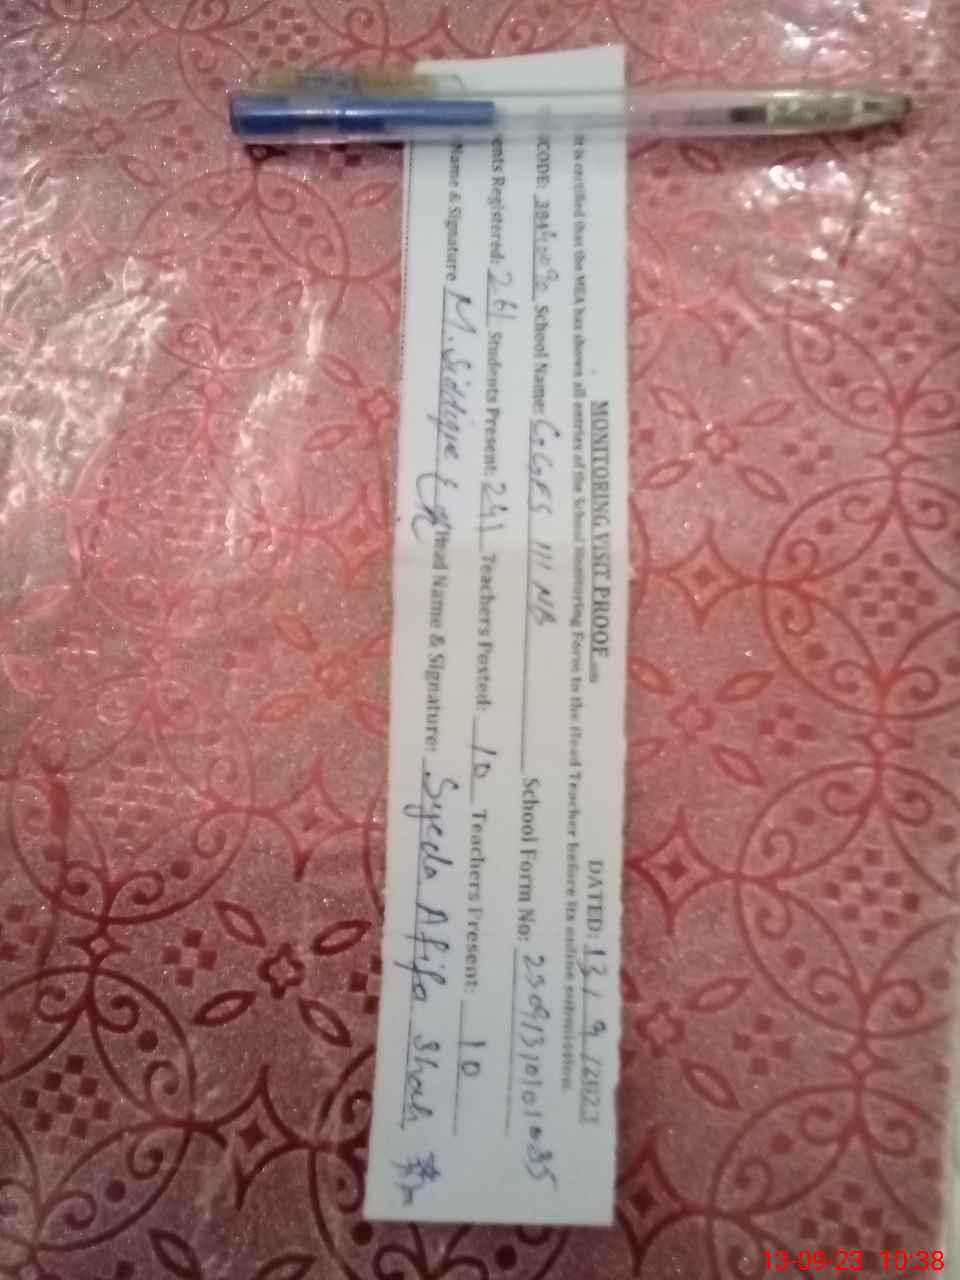 MONITORING VISIT PROOF DATED: 13/9/2023
It is certified that the MEA has shown all entries of the School Monitoring Form to the Head Teacher before its online submission.
CODE: School Name: GGES III NB School Form No:
ents Registered: 261 Students Present: 241 Teachers Posted: 10 Teachers Present: 10
Name & Signature M. Siddique Head Name & Signature: Syeda Afifa Shah
13-09-23 10:38